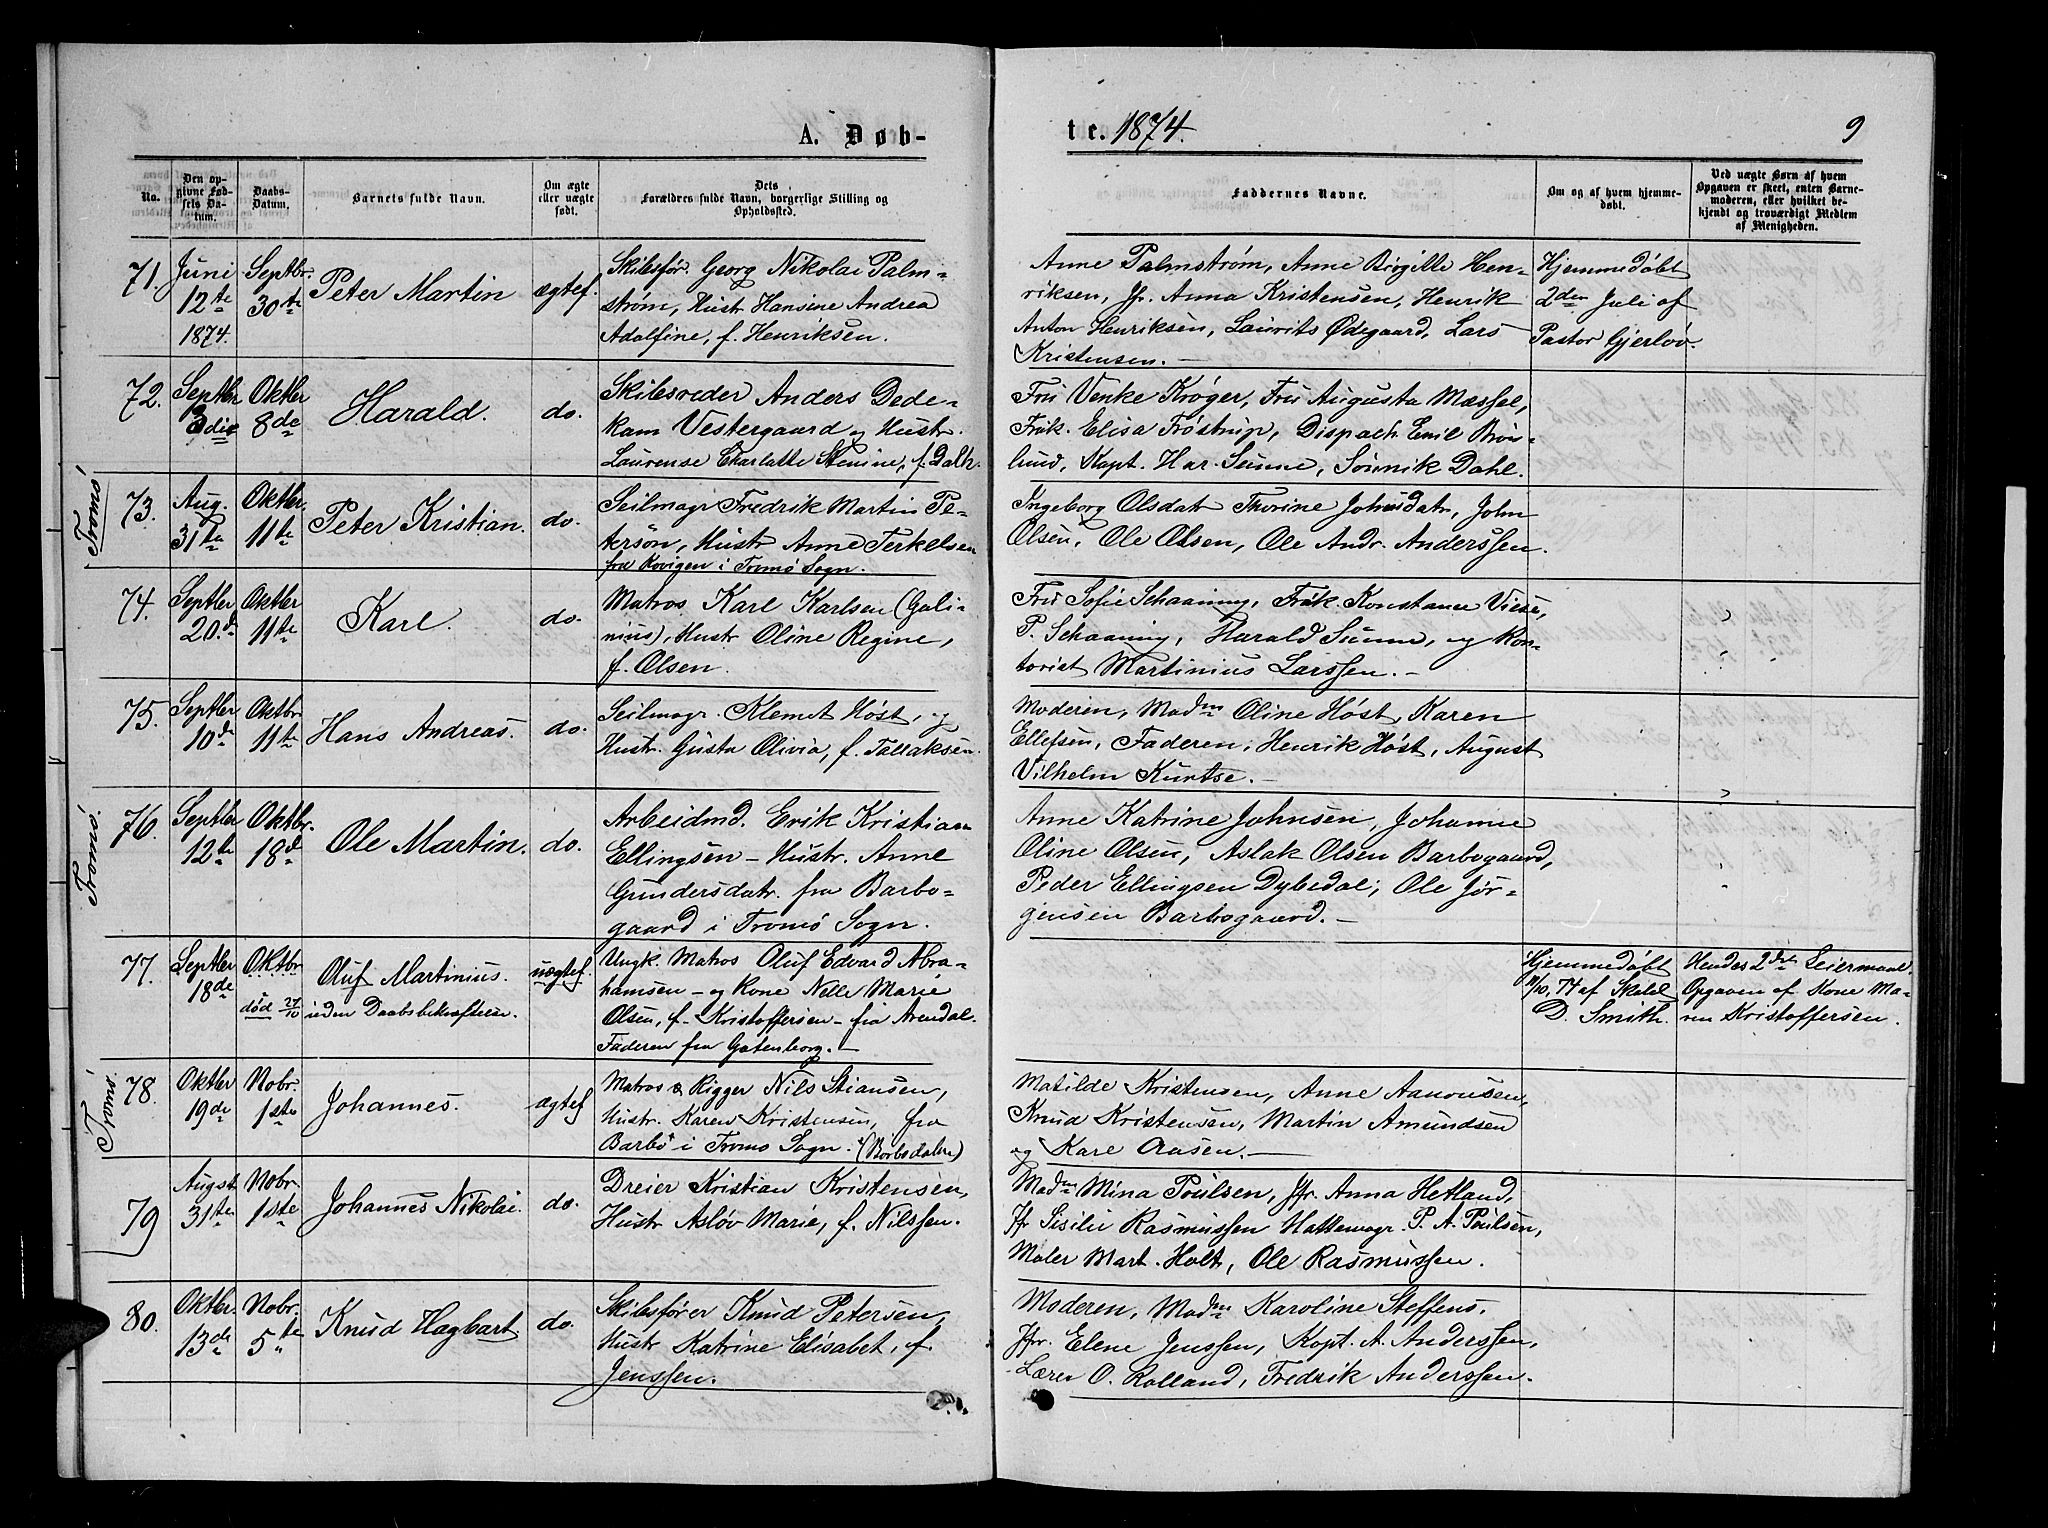 A. Døb-
te. 1874.
9
No.
Den op-
givne Fød-
sels Da-
tum.
Daabs-
Datum.
Barnets fulde Navn.
Om ægte
eller uægte
født.
Dets
Forældres fulde Navn, borgerlige Stilling og
Opholdssted.
Faddernes Navne.
Om og af hvem hjemme-
døbt.
Ved uægte Børn af hvem
Opgaven er skeet, enten Barne-
moderen, eller hvilket be-
kjendt og troværdigt Medlem
af Menigheden.
71. Juni 12te 1874. Septbr. 30te Peter Martin ægtef.
Skibsfør. Georg Nikolai Palm-
strøm, Hustr Hansine Andrea
Adolfine, f. Henriksen.
Anne Palmstrøm, Anne Birgitte Hen-
riksen, Jfr. Anna Kristensen, Henrik
Anton Henriksen, Laurits Ødegaard, Lars
Kristensen. —
Hjemmedøbt
2den Juli af
Pastor Gjerløv.
72. Septbr 3die Oktbr 8de Harald. do.
Skibsreder Anders Dede-
kam Vestergaard og Hustr.
Laurense Charlotte Stenine, f. Dahl.
Fru Venke Krøger, Fru Augusta Mæssel,
Frøk. Elisa Frøstrup, Dispach. Emil Brön-
lund, Kapt. Har. Sunne, Dahl.
Tromö
73. Aug. 31te Oktbr. 11te Peter Kristian. do.
Seilmagr Fredrik Martin Pe-
tersön, Hustr Anne Terkelsen
fra Kovigen i Tromö Sogn.
Ingeborg Olsdatr Thorine Johnsdatr, John
Olsen, Ole Olsen, Ole Andr. Anderssen.
74. Septbr 20.de Oktbr 11te Karl. do.
Matros Karl Karlsen (Gali-
nius), Hustr Oline Regine,
f. Olsen.
Fru Sofie Schaaning, Frøk. Konstance Viese,
P. Schaaning, Harald Sunne, og Kon-
torist Martinius Larssen. —
75. Septbr 10de Oktbr. 11te Hans Andreas. do.
Seilmagr. Klemet Høst, og
Hustr. Gusta Olivia, f. Tallaksen.
Moderen, Madm Oline Høst, Karen
Ellefsen, Faderen, Henrik Høst, August
Vilhelm Kurtse. —
Tromö.
76. Septbr 12te Oktbr. 18de Ole Martin. do.
Arbeidmd. Erik Kristian
Ellingsen — Hustr. Anne
Gundersdatr. fra Barbo-
gaard i Tromö Sogn.
Anne Katrine Johnsen, Johanne
Oline Olsen, Aslak Olsen Barbogaard,
Peder Ellingsen Dybedal; Ole Jör-
gensen Barbogaard. —
77. Septbr 18de Oktbr død 27/10 Oluf Martinius. uægtef.
uden Daabsbekræftelse.
Ungk. Matros Oluf Edvard Abra-
hamsen — og Kone Nelle Marie
Olsen, f. Kristoffersen — fra Arendal.
Faderen fra Gøtenborg. —
Hjemmedøbt
11/10. 74 af
D. Smith.
Hendes 2det Leiermaal.
Opgaven af Kone Ma-
ren Kristoffersen.
Tromö.
78. Oktbr 19de Nobr. 1ste Johannes. ægtef
Matros & Rigger Nils Stiansen,
Hustr. Karen Kristensen, fra
Barbo i Tromö Sogn. (Barbodalen)
Matilde Kristensen, Anne Aanonsen,
Knud Kristensen, Martin Amundsen
og Karl Aasen. —
79 Augst. 31te Nobr. 1ste Johannes Nikolai. do.
Dreier Kristian Kristensen,
Hustr Asløv Marie, f. Nilssen.
Madm Mina Poulsen, Jfr. Anna Hetland,
Jfr Sisilie Rasmussen Hattemagr. P. A. Poulsen,
Maler Mart. Holt, Ole Rasmussen.
80. Oktbr. 13de Nobr. 5te Knud Hagbart do.
Skibsfører Knud Petersen,
Hustr Katrine Elisabet, f.
Jenssen.
Moderen, Madm Karoline Steffens,
Jfr. Elene Jenssen, Kapt. A. Anderssen,
Lærer O. Rolland, Fredrik Anderssen.